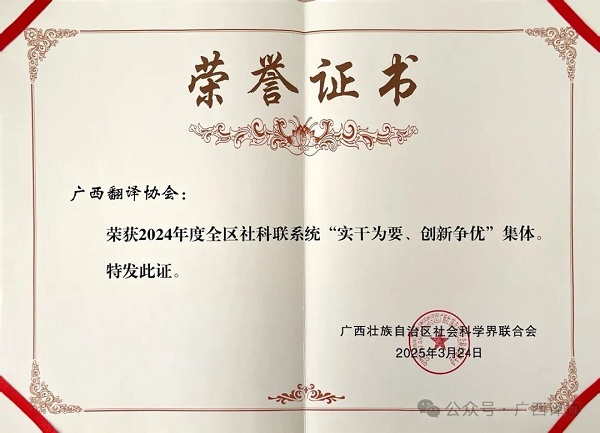 荣誉证书
广西翻译协会：
荣获2024年度全区社科联系统“实干为要、创新争优”集体。
特发此证。
广西壮族自治区社会科学界联合会
2025年3月24日
公众号·广西译协